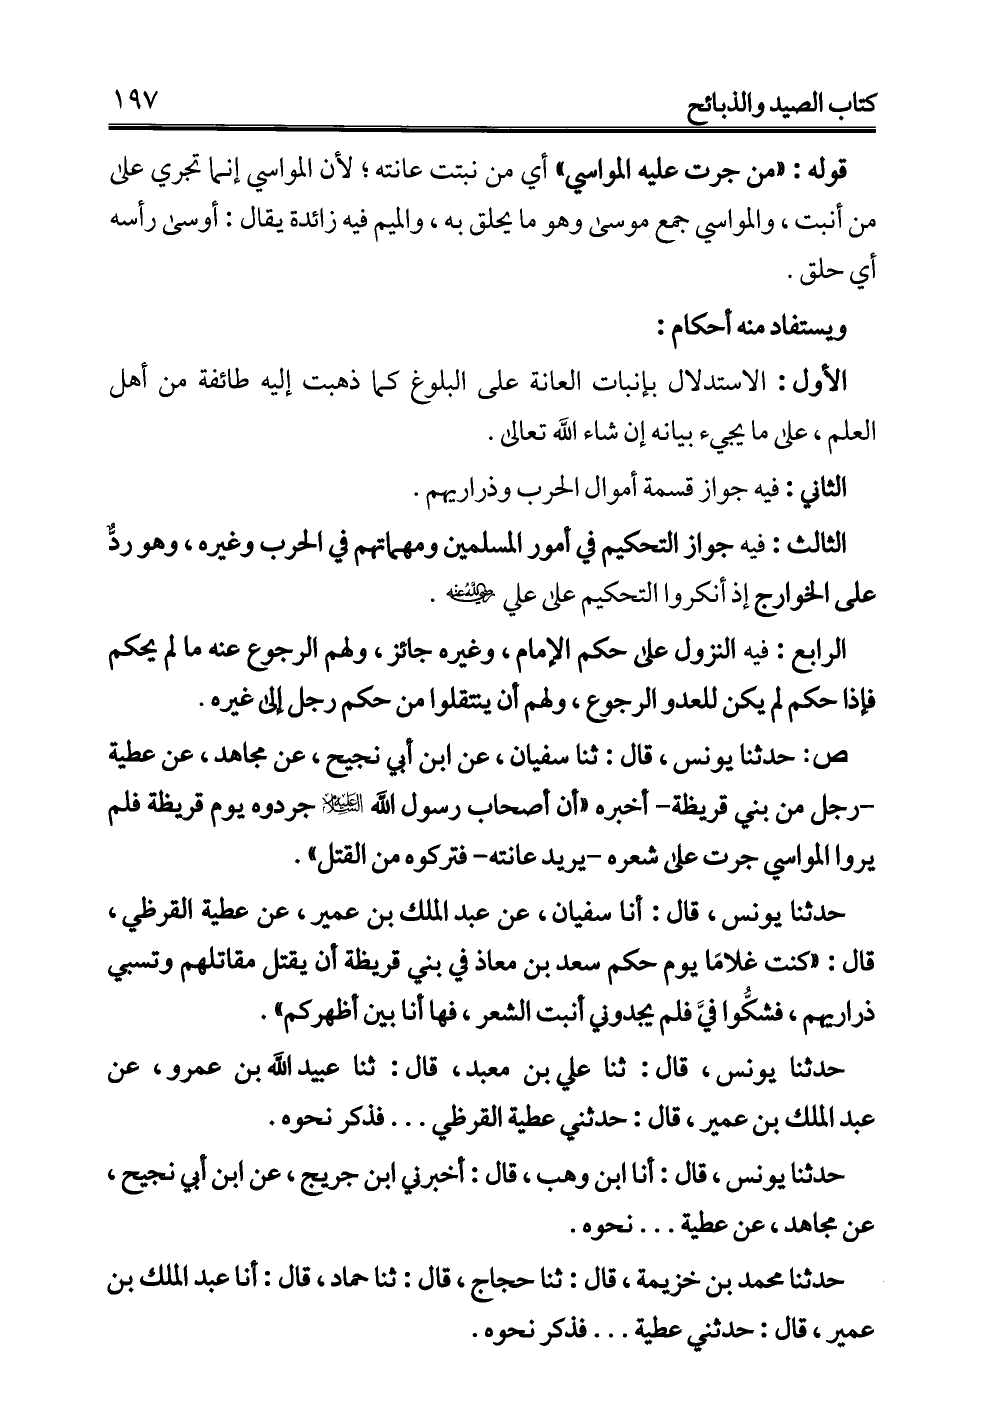 كتاب الصيد والذبائح ١٩٧
قوله : «من جرت عليه المواسي» أي من نبتت عانته ؛ لأن المواسي إنما تجري على
من أنبت ، والمواسي جمع موسى وهو ما يحلق به ، والميم فيه زائدة يقال : أوسى رأسه
أي حلق .
ويستفاد منه أحكام :
الأول : الاستدلال بإنبات العانة على البلوغ كما ذهبت إليه طائفة من أهل
العلم ، على ما يجيء بيانه إن شاء الله تعالى .
الثاني : فيه جواز قسمة أموال الحرب وذراريهم .
الثالث : فيه جواز التحكيم في أمور المسلمين ومهماتهم في الحرب وغيره ، وهو ردٌّ
على الخوارج إذ أنكروا التحكيم على علي رضي الله عنه .
الرابع : فيه النزول على حكم الإمام ، وغيره جائز ، ولهم الرجوع عنه ما لم يحكم
فإذا حكم لم يكن للعدو الرجوع ، ولهم أن ينتقلوا من حكم رجل إلى غيره .
ص : حدثنا يونس ، قال : ثنا سفيان ، عن ابن أبي نجيح ، عن مجاهد ، عن عطية
-رجل من بني قريظة- أخبره «أن أصحاب رسول الله عليه السلام جردوه يوم قريظة فلم
يروا المواسي جرت على شعره -يريد عانته- فتركوه من القتل» .
حدثنا يونس ، قال : أنا سفيان ، عن عبد الملك بن عمير ، عن عطية القرظي ،
قال : «كنت غلامًا يوم حكم سعد بن معاذ في بني قريظة أن يقتل مقاتلهم وتسبي
ذراريهم ، فشكُّوا فيَّ فلم يجدوني أنبت الشعر ، فها أنا بين أظهركم» .
حدثنا يونس ، قال : ثنا علي بن معبد ، قال : ثنا عبيد الله بن عمرو ، عن
عبد الملك بن عمير ، قال : حدثني عطية القرظي ... فذكر نحوه .
حدثنا يونس ، قال : أنا ابن وهب ، قال : أخبرني ابن جريج ، عن ابن أبي نجيح ،
عن مجاهد ، عن عطية ... نحوه .
حدثنا محمد بن خزيمة ، قال : ثنا حجاج ، قال : ثنا حماد ، قال : أنا عبد الملك بن
عمير ، قال : حدثني عطية ... فذكر نحوه .